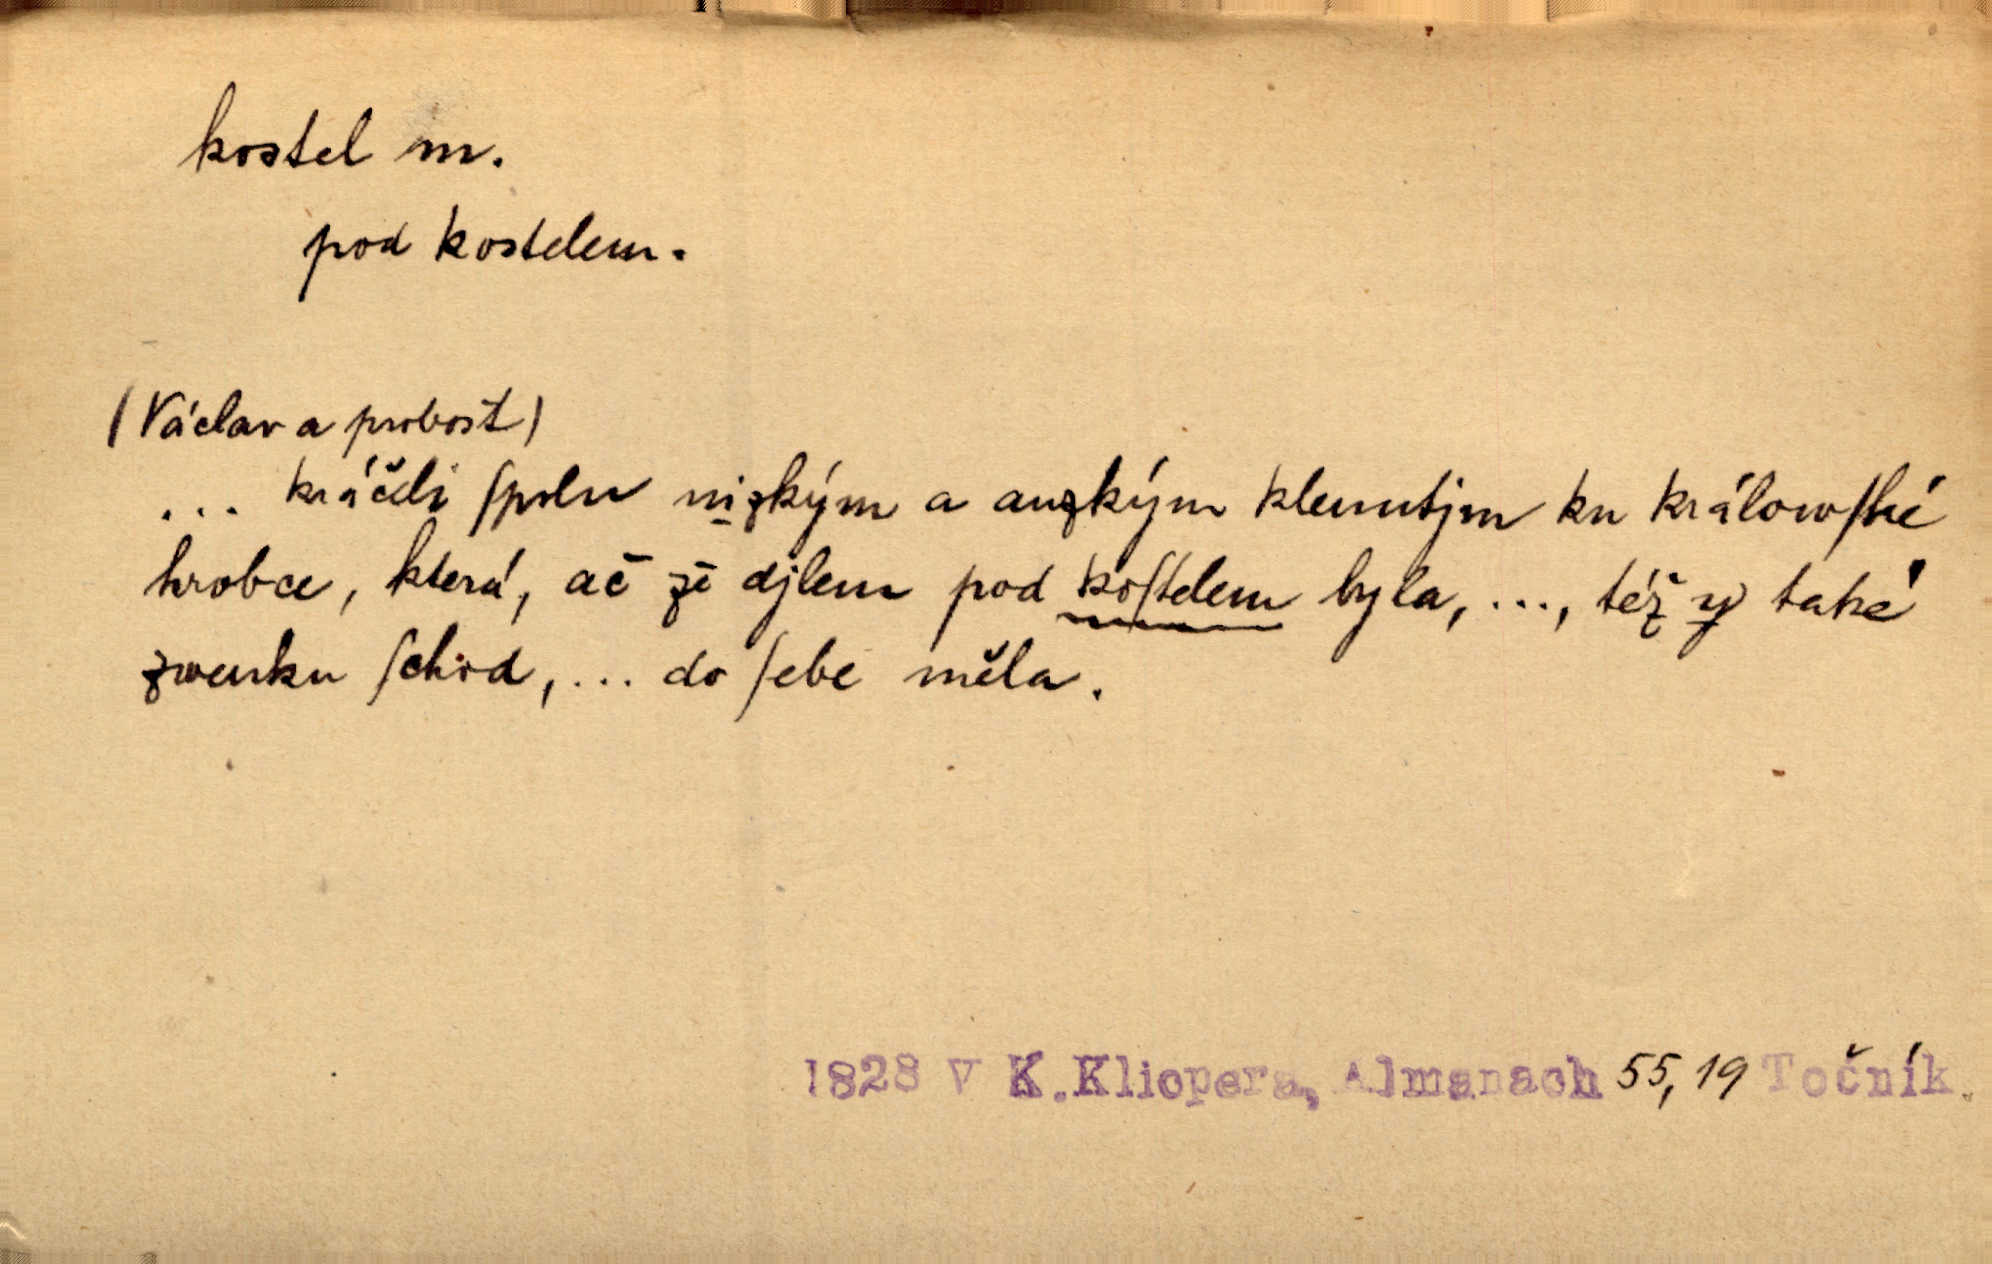 kostel m.
pod kostelem.
(Václav a probošt)
... kráčeli ſpolu nizkým a auzkým klenutjm ku králowſké
hrobce, která, ač zē djlem pod koſtelem byla, ..., též y také
zwenku ſchod, ... do ſebe měla.
1828 V K.Klicpera, Almanach 55,19 Točník.